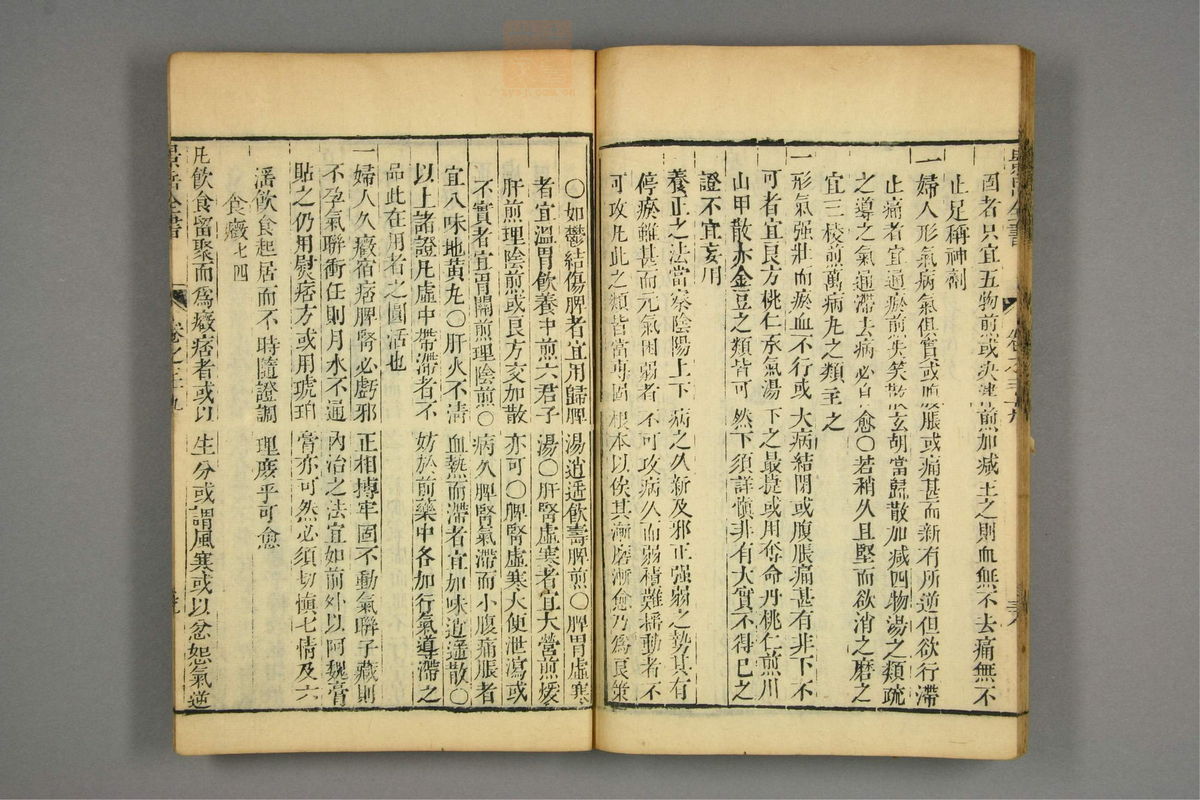 固者只宜五物煎或決津煎加減主之則血無不去痛無不
止足稱神劑
一婦人形氣病氣俱實或腹脹或痛甚而新有所逆但欲行滯
止痛者宜通瘀煎失笑散玄胡當歸散加減四物湯之類疏
之導之氣通滯去病必自愈○若稍久且堅而欲消之磨之
宜三稜煎萬病丸之類主之
一形氣强壯而瘀血不行或大病結閉或腹脹痛甚有非下不
可者宜良方桃仁承氣湯下之最捷或用奪命丹桃仁煎川
山甲散亦金荳之類皆可然下須詳慎非有大實不得已之
證不宜妄用
養正之法當察陰陽上下病之久新及邪正强弱之勢其有
停瘀雖甚而元氣困弱者不可攻病久而弱積難揺動者不
可攻凡此之類皆當專固根本以俟其漸磨漸愈乃爲良策
景岳全書
卷之三十九
○如鬱結傷脾者宜用歸脾湯逍遥飲壽脾煎○脾胃虛寒
者宜溫胃飲養中煎六君子湯○肝腎虛寒者宜大營煎煖
肝煎理陰煎或良方交加散亦可○脾腎虛寒大便泄瀉或
不實者宜胃關煎理陰煎○病久脾腎氣滯而小腹痛脹者
宜八味地黃丸○肝火不清血熱而滯者宜加味逍遥散○
以上諸證凡虛中帶滯者不妨於前藥中各加行氣導滯之
品此在用者之圓活也
一婦人久癥宿痞脾腎必虧邪正相搏牢固不動氣聯子藏則
不孕氣聯衝任則月水不通內治之法宜如前外以阿魏膏
貼之仍用熨痞方或用琥珀膏亦可然必須切慎七情及六
淫飲食起居而不時隨證調理庶乎可愈
食癥七四
凡飲食留聚而爲癥痞者或以生分或謂風寒或以忿怒氣逆
景岳全書
卷之三十九